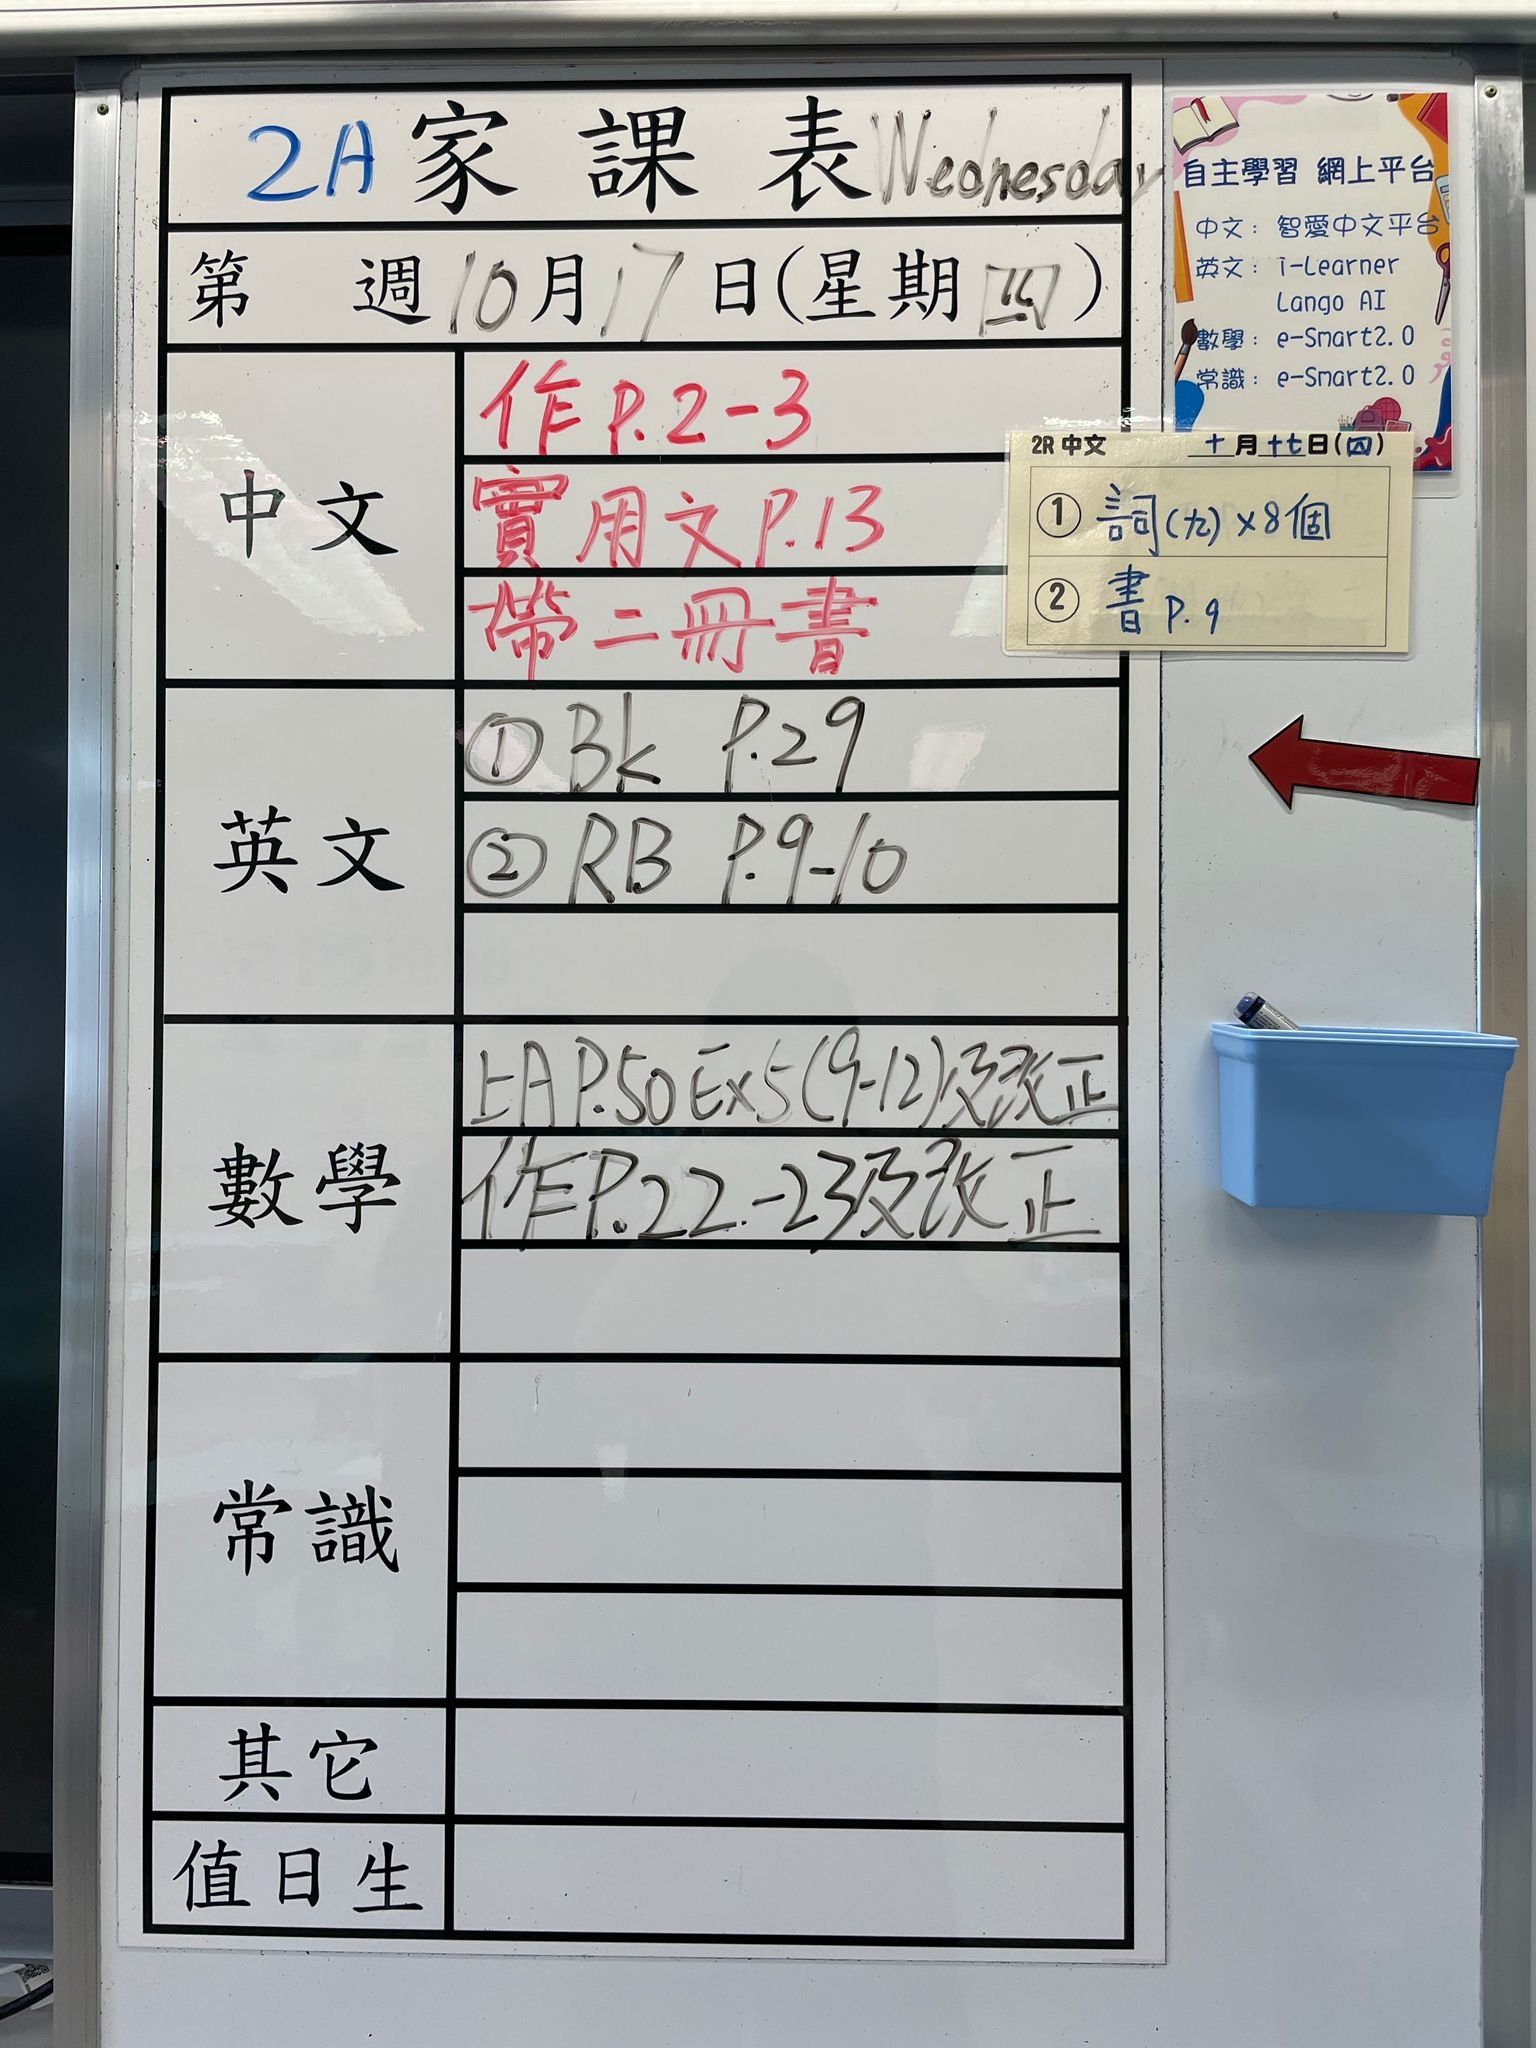 2A家課表 Wednesday
第 週10月17日(星期四)
中文
作P.2-3
實用文P.13
帶二冊書
英文
① Bk P.29
② RB P.9-10
數學
上A P.50 Ex5(9-12)及改正
作P.22-23及改正
常識
其它
值日生
自主學習 網上平台
中文：智愛中文平台
英文：i-Learner
Lango AI
數學：e-Smart2.0
常識：e-Smart2.0
2R 中文 十月十七日(四)
① 詞(九)×8個
② 書 P.9